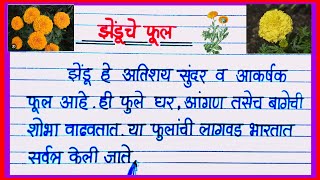 झेंडूचे फूल
झेंडू हे अतिशय सुंदर व आकर्षक
फूल आहे. ही फुले घर, आंगण तसेच बागेची
शोभा वाढवतात. या फुलांची लागवड भारतात
सर्वत्र केली जाते.